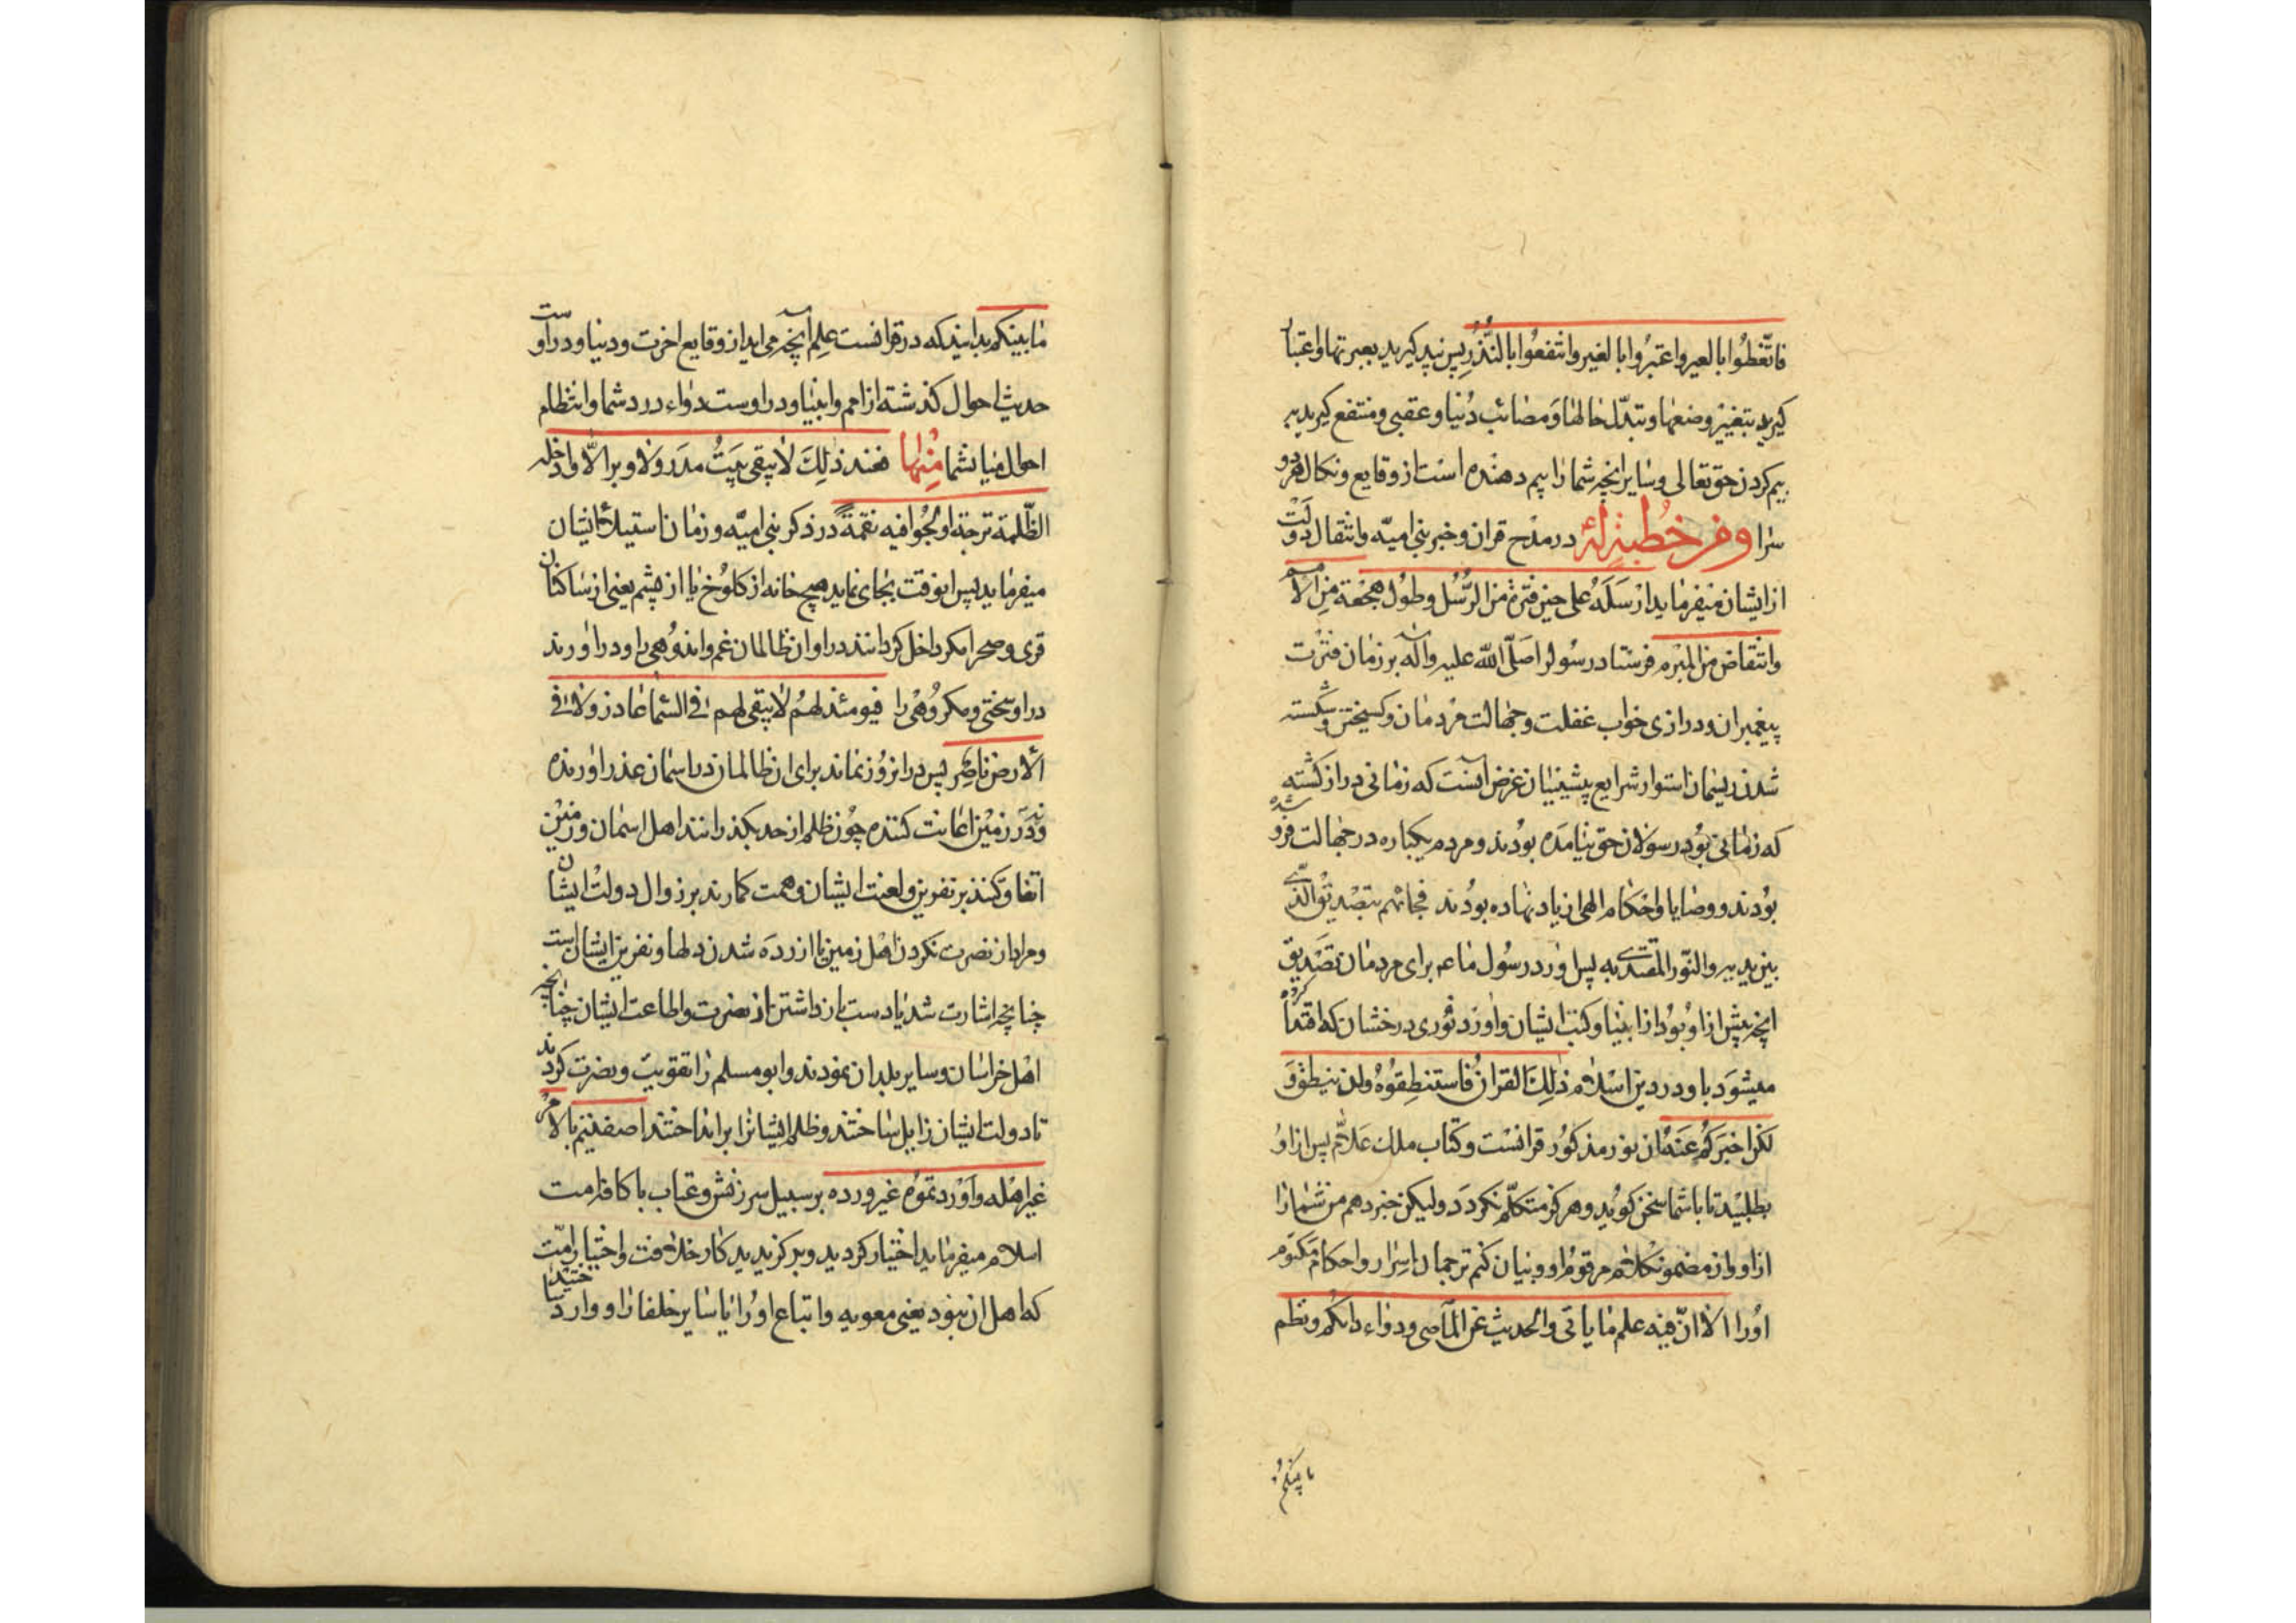 فاتّعظوا بالعبر واعتبروا بالغير وانتفعوا بالنّذر پس پند کیرید بعبرتها واعتبار
کیرید بتغیّر وضعها وتبدّل حالها و مصائب دنیا و عقبی و منتفع کیرید به
بیم کردن حق تعالی و سایر انچه شما را بیم دهنده است از وقایع و نکال هر دو
سرا ومن خطبة له در مدح قران و خبر بنی امیّه وانتقال دولت
از ایشان میفرماید ارسله علی حین فترة من الرّسل وطول هجعة من الامم
وانتقاض من المبرم فرستاد رسولرا صلّی اللّه علیه وآله بر زمان فترت
پیغمبران و درازی خواب غفلت و جهالت مردمان و کسیختن و شکسته
شدن ریسمان استوار شرایع پیشینیان غرض آنست که زمانی دراز کشته
که زمانی بود رسولان حق نیامده بودند و مردم یکباره در جهالت فرو شده
بودند و وصایا و احکام الهی از یاد نهاده بودند فجائهم بتصدیق الّذی
بین یدیه والنّور المقتدی به پس اورد رسول ما عم برای مردمان تصدیق
انچه پیش از او بود از انبیا و کتب ایشان و اورد نوری درخشان که اقتدا کرده
میشود باو در دین اسلام ذلك القران فاستنطقوه ولن ینطق و
لکن اخبرکم عنه ان نور مذکور قرانست و کتاب ملك علام پس از او
بطلبید تا با شما سخن کوید و هرکز متکلّم نکردد ولیکن خبر دهم من شما را
از او و از مضمون کلام مرقوم او و بیان کنم ترجمان اسرار و احکام مکتوم
اورا الا انّ فیه علم ما یاتی والحدیث عن الماضی ودواء دائکم ونظم
ما بینکم
ما بینکم بدانید که در قرانست علم آنچه می اید از وقایع اخرت و دنیا و در اوست
حدیث احوال کذشته از امم و انبیا و در اوست دواء درد شما وانتظام
احوال میان شما منها فعند ذلك لا یبقی بیت مدر ولا وبر الّا وادخله
الظّلمة ترحة واولجوا فیه نقمة در ذکر بنی امیّه و زمان استیلای ایشان
میفرماید پس انوقت بجای نماید هیچ خانه از کلوخ یا از پشم یعنی از ساکنان
قری و صحرا مکر داخل کردانند در او ان ظالمان غم و اندوهی را و در اورند
در او سختی و مکروهی را فیومئذ لهم لا یبقی لهم فی السّماء عاذر ولا فی
الارض ناصر پس در ان روز نماند برای ان ظالمان در اسمان عذر اورنده
و در زمین اعانت کننده چون ظلم از حد بکذرانند اهل اسمان و زمین
اتفاق کنند بر نفرین و لعنت ایشان و همت کمارند بر زوال دولت ایشان
و مراد از نصرت نکردن اهل زمین یا ازرده شدن دلها و نفرین ایشان است
چنانچه اشارت شد یا دست باز داشتن از نصرت و اطاعت ایشان چنانچه
اهل خراسان و سایر بلدان نمودند و ابو مسلم را تقویت و نصرت کردند
تا دولت ایشان زایل ساختند و ظلم ایشانرا برانداختند اصفیتم بالامر
غیر اهله واوردتموه غیر ورده بر سبیل سرزنش و عتاب با کافه امت
اسلام میفرماید اختیار کردید و برکزیدید کار خلافت و اختیار امّت
که اهل ان نبود یعنی معویه و اتباع او را یا سایر خلفا را و وارد ساختید